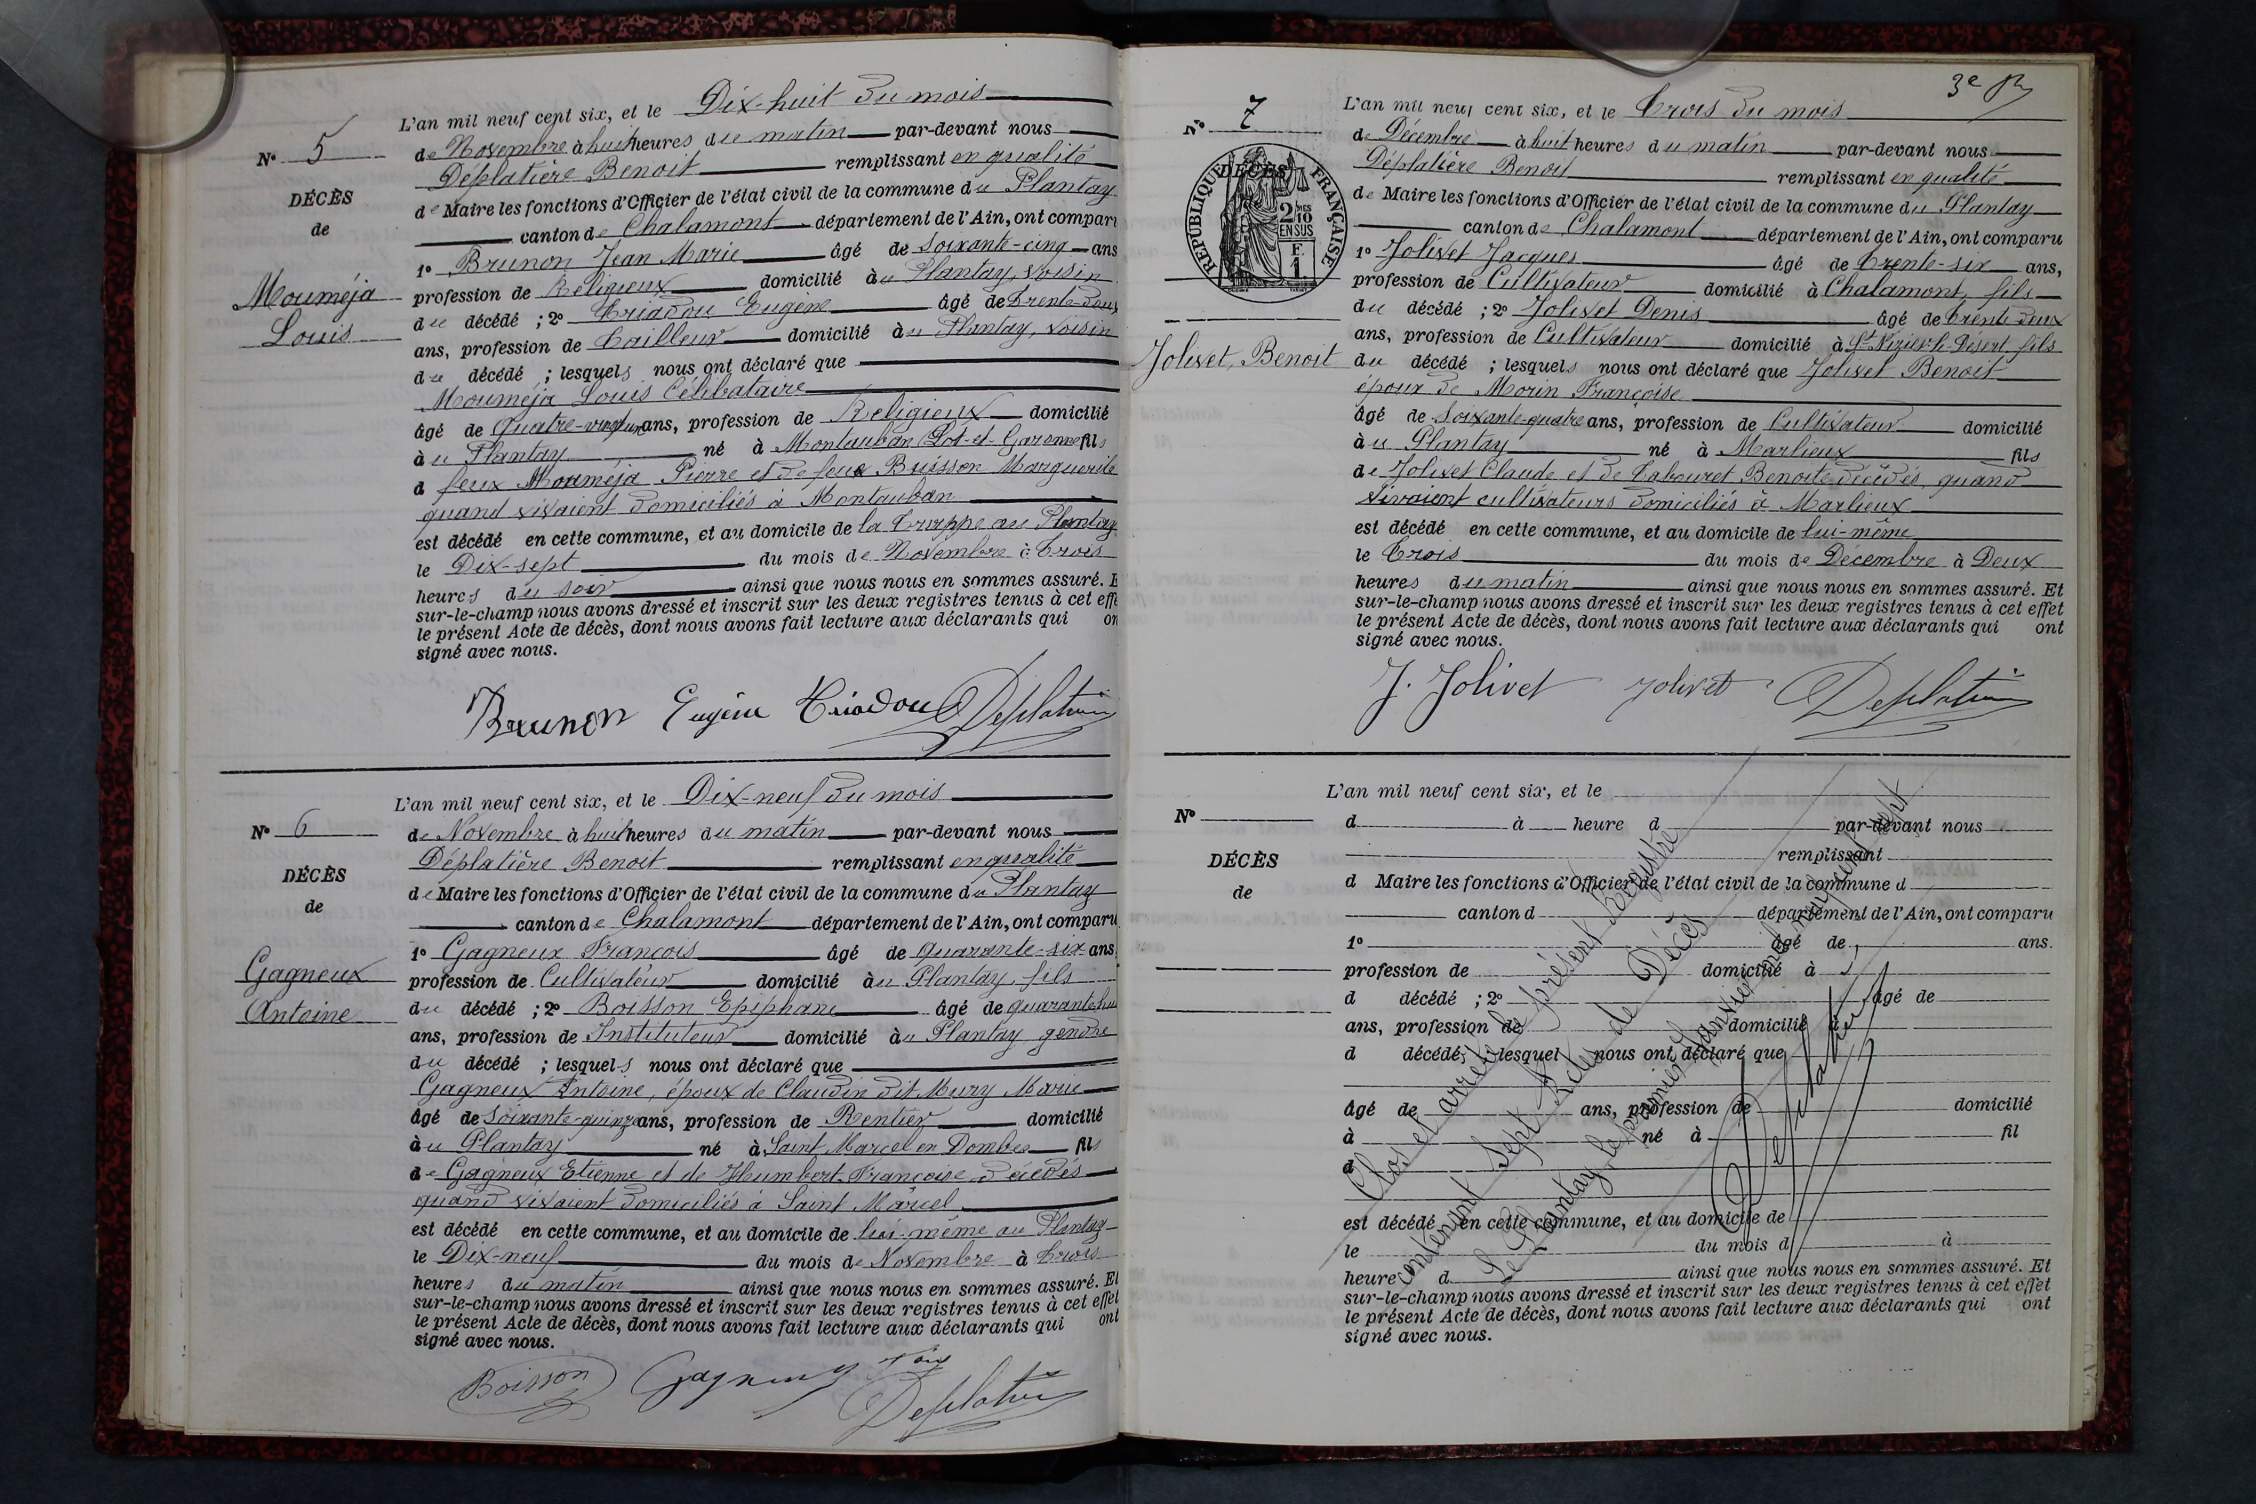 N° 5
DÉCÈS
de
Mouméja
Louis
L'an mil neuf cent six, et le Dix-huit du mois
de Novembre à huit heures du matin par-devant nous
Déplatière Benoit remplissant en qualité
de Maire les fonctions d'Officier de l'état civil de la commune du Plantay
canton de Chalamont département de l'Ain, ont comparu
1° Brunon Jean Marie âgé de soixante-cinq ans
profession de Religieux domicilié au Plantay, voisin
du décédé ; 2° Criadou Eugène âgé de trente-deux
ans, profession de Tailleur domicilié au Plantay, voisin
du décédé ; lesquels nous ont déclaré que
Mouméja Louis Célibataire
âgé de Quatre-vingt un ans, profession de Religieux domicilié
au Plantay né à Montauban (Lot-et-Garonne fils
d feux Mouméja Pierre et de feue Buisson Marguerite
quand vivaient domiciliés à Montauban
est décédé en cette commune, et au domicile de la Trappe au Plantay
le Dix-sept du mois de Novembre à Trois
heures du soir ainsi que nous nous en sommes assuré. E
sur-le-champ nous avons dressé et inscrit sur les deux registres tenus à cet effe
le présent Acte de décès, dont nous avons fait lecture aux déclarants qui on
signé avec nous.
Brunon Eugène Criadou Deplatière
N° 6
DÉCÈS
de
Gagneux
Antoine
L'an mil neuf cent six, et le Dix-neuf du mois
de Novembre à huit heures du matin par-devant nous
Déplatière Benoit remplissant en qualité
de Maire les fonctions d'Officier de l'état civil de la commune du Plantay
canton de Chalamont département de l'Ain, ont comparu
1° Gagneux François âgé de quarante-six ans
profession de Cultivateur domicilié au Plantay, fils
du décédé ; 2° Boisson Epiphane âgé de quarante hu
ans, profession de Instituteur domicilié au Plantay gendre
du décédé ; lesquels nous ont déclaré que
Gagneux Antoine, époux de Claudin dit Mury Marie
âgé de soixante-quinze ans, profession de Rentier domicilié
au Plantay né à Saint Marcel en Dombes fils
de Gagneux Etienne et de Humbert Françoise décédés
quand vivaient domiciliés à Saint Marcel
est décédé en cette commune, et au domicile de lui-même au Plantay
le Dix-neuf du mois de Novembre à Trois
heures du matin ainsi que nous nous en sommes assuré. Et
sur-le-champ nous avons dressé et inscrit sur les deux registres tenus à cet effet
le présent Acte de décès, dont nous avons fait lecture aux déclarants qui ont
signé avec nous.
Boisson Gagneux Fois Deplatière
3e
N° 7
DÉCÈS
RÉPUBLIQUE FRANÇAISE
2 MES
10
EN SUS
F.
1.
Jolivet, Benoit
L'an mil neuf cent six, et le Trois du mois
de Décembre à huit heures du matin par-devant nous
Déplatière Benoit remplissant en qualité
de Maire les fonctions d'Officier de l'état civil de la commune du Plantay
canton de Chalamont département de l'Ain, ont comparu
1° Jolivet Jacques âgé de Trente-six ans,
profession de Cultivateur domicilié à Chalamont, fils
du décédé ; 2° Jolivet Denis âgé de trente deux
ans, profession de Cultivateur domicilié à St Nizier-le-Désert fils
du décédé ; lesquels nous ont déclaré que Jolivet Benoit
époux de Morin Françoise
âgé de Soixante-quatre ans, profession de Cultivateur domicilié
au Plantay né à Marlieux fils
de Jolivet Claude et de Cabouret Benoite décédés, quand
vivaient cultivateurs domiciliés à Marlieux
est décédé en cette commune, et au domicile de lui-même
le Trois du mois de Décembre à Deux
heures du matin ainsi que nous nous en sommes assuré. Et
sur-le-champ nous avons dressé et inscrit sur les deux registres tenus à cet effet
le présent Acte de décès, dont nous avons fait lecture aux déclarants qui ont
signé avec nous.
J. Jolivet Jolivet Deplatière
N°
DÉCÈS
de
L'an mil neuf cent six, et le
d à heure d par-devant nous
remplissant
d Maire les fonctions d'Officier de l'état civil de la commune d
canton d département de l'Ain, ont comparu
1° âgé de ans.
profession de domicilié à
d décédé ; 2° âgé de
ans, profession de domicilié à
d décédé ; lesquel nous ont déclaré que
âgé de ans, profession de domicilié
à né à fil
d
est décédé en cette commune, et au domicile de
le du mois d à
heure d ainsi que nous nous en sommes assuré. Et
sur-le-champ nous avons dressé et inscrit sur les deux registres tenus à cet effet
le présent Acte de décès, dont nous avons fait lecture aux déclarants qui ont
signé avec nous.
Clos et arrêté le présent Registre
contenant Sept Actes de Décès
Le Plantay, le premier Janvier mil neuf cent sept
Deplatière